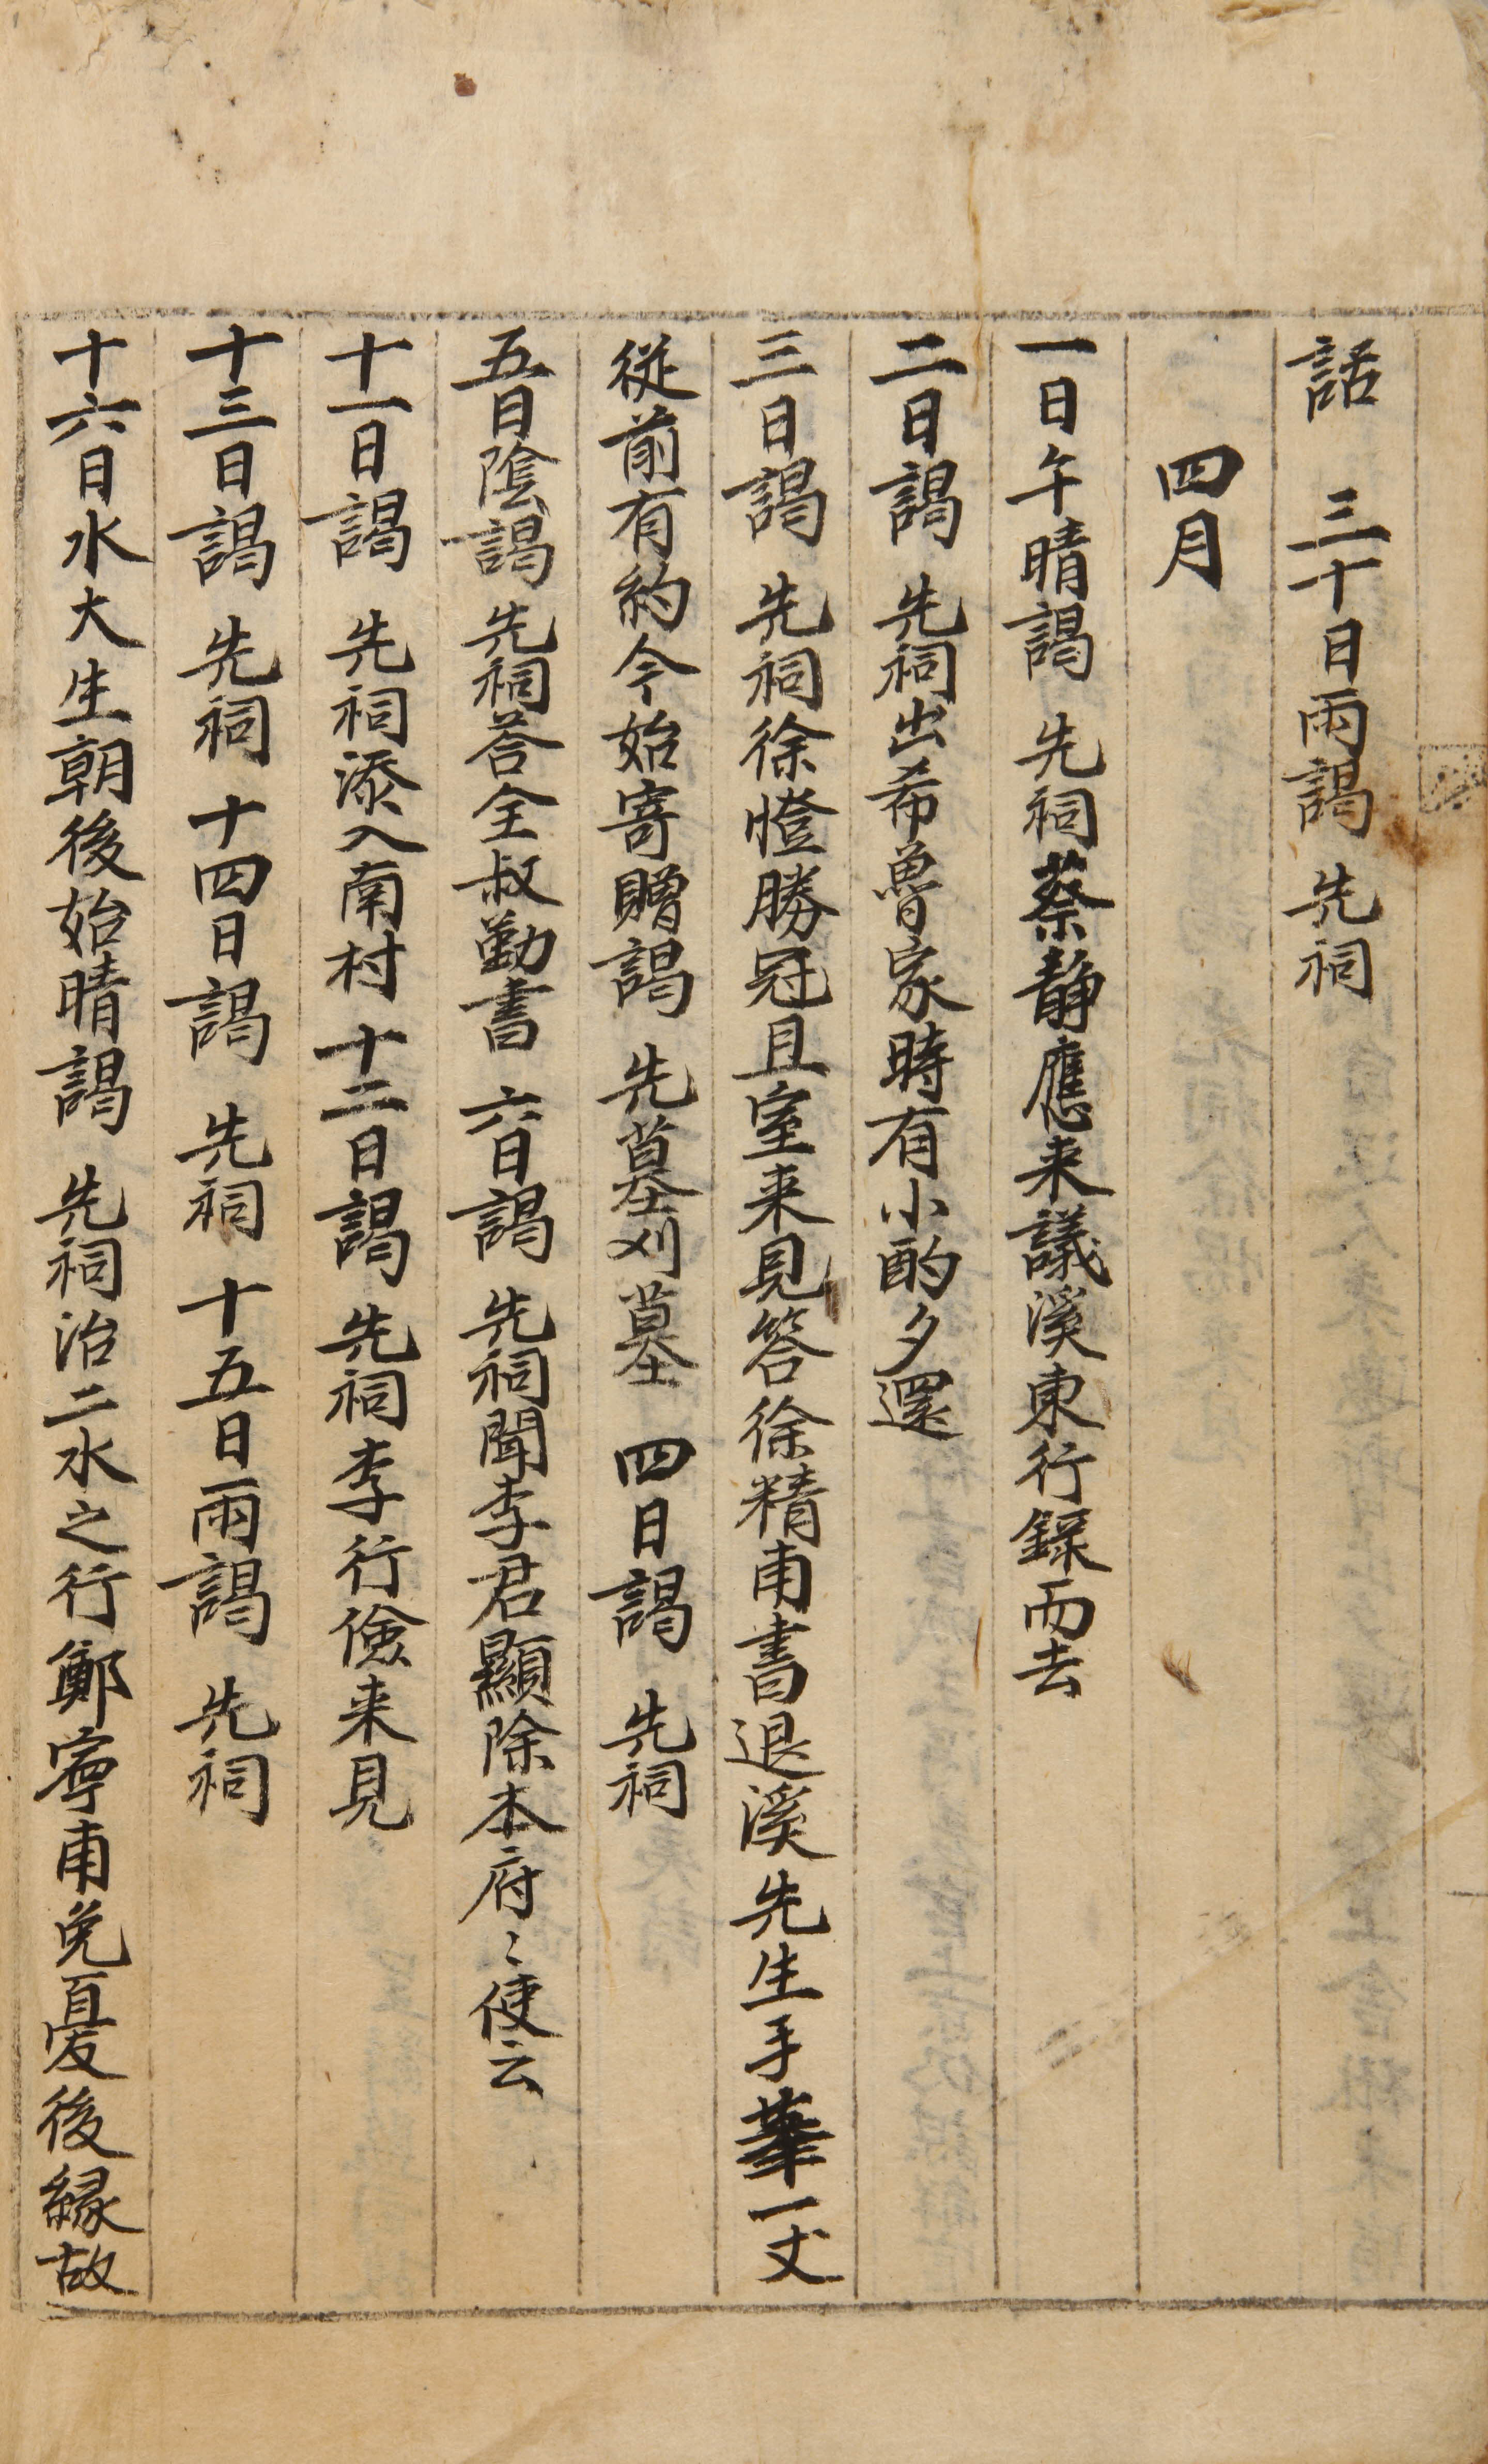 話 三十日雨謁 先祠
四月
一日午晴謁 先祠蔡靜應来議溪東行錄而去
二日謁 先祠出希魯家時有小酌夕還
三日謁 先祠徐憕勝冠且室来見答徐精甫書退溪先生手筆一丈
從前有約今始寄贈謁 先墓刈墓 四日謁 先祠
五日陰謁 先祠答全叔勤書 六日謁 先祠聞李君顯除本府〻使云
十一日謁 先祠添入南村 十二日謁 先祠李行儉来見
十三日謁 先祠 十四日謁 先祠 十五日雨謁 先祠
十六日水大生朝後始晴謁 先祠治二水之行鄭寧甫免憂後緣故